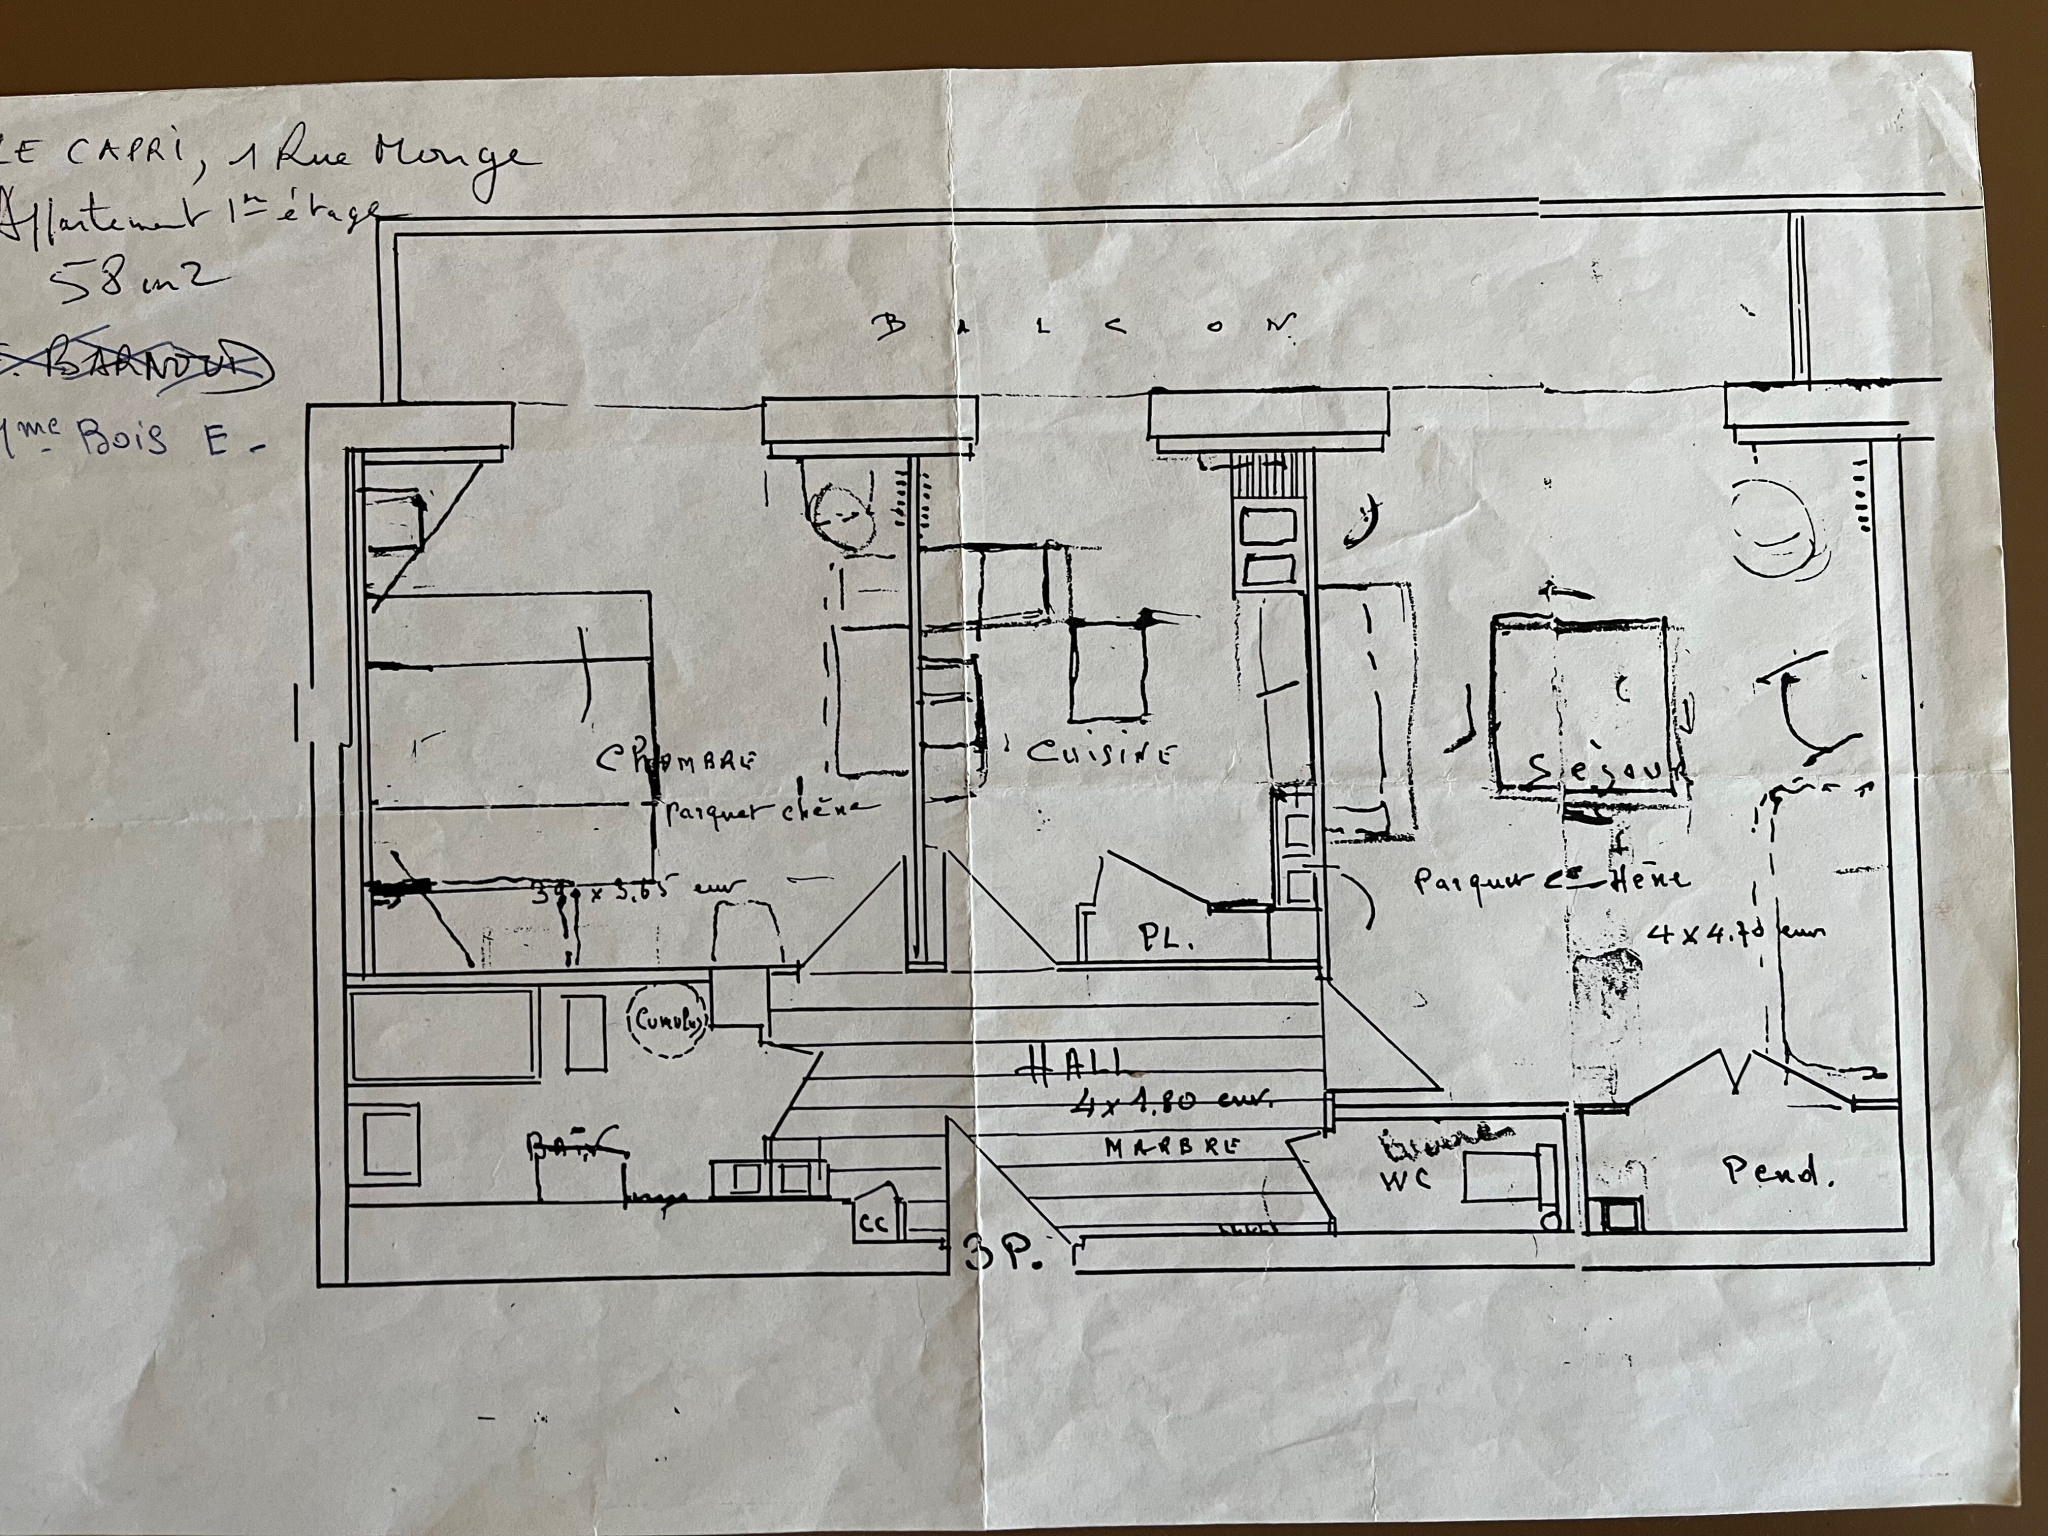 LE CAPRI, 1 Rue Monge
Appartement 1er étage
58 m2
BARNOUD
Mme Bois E.
BALCON
CHAMBRE
parquet chêne
CUISINE
Séjour
Parquet Chêne
4 x 4.70 env
PL.
Cumulus
HALL
4 x 1,80 env.
MARBRE
BAIN
CC
3P.
WC
Pend.